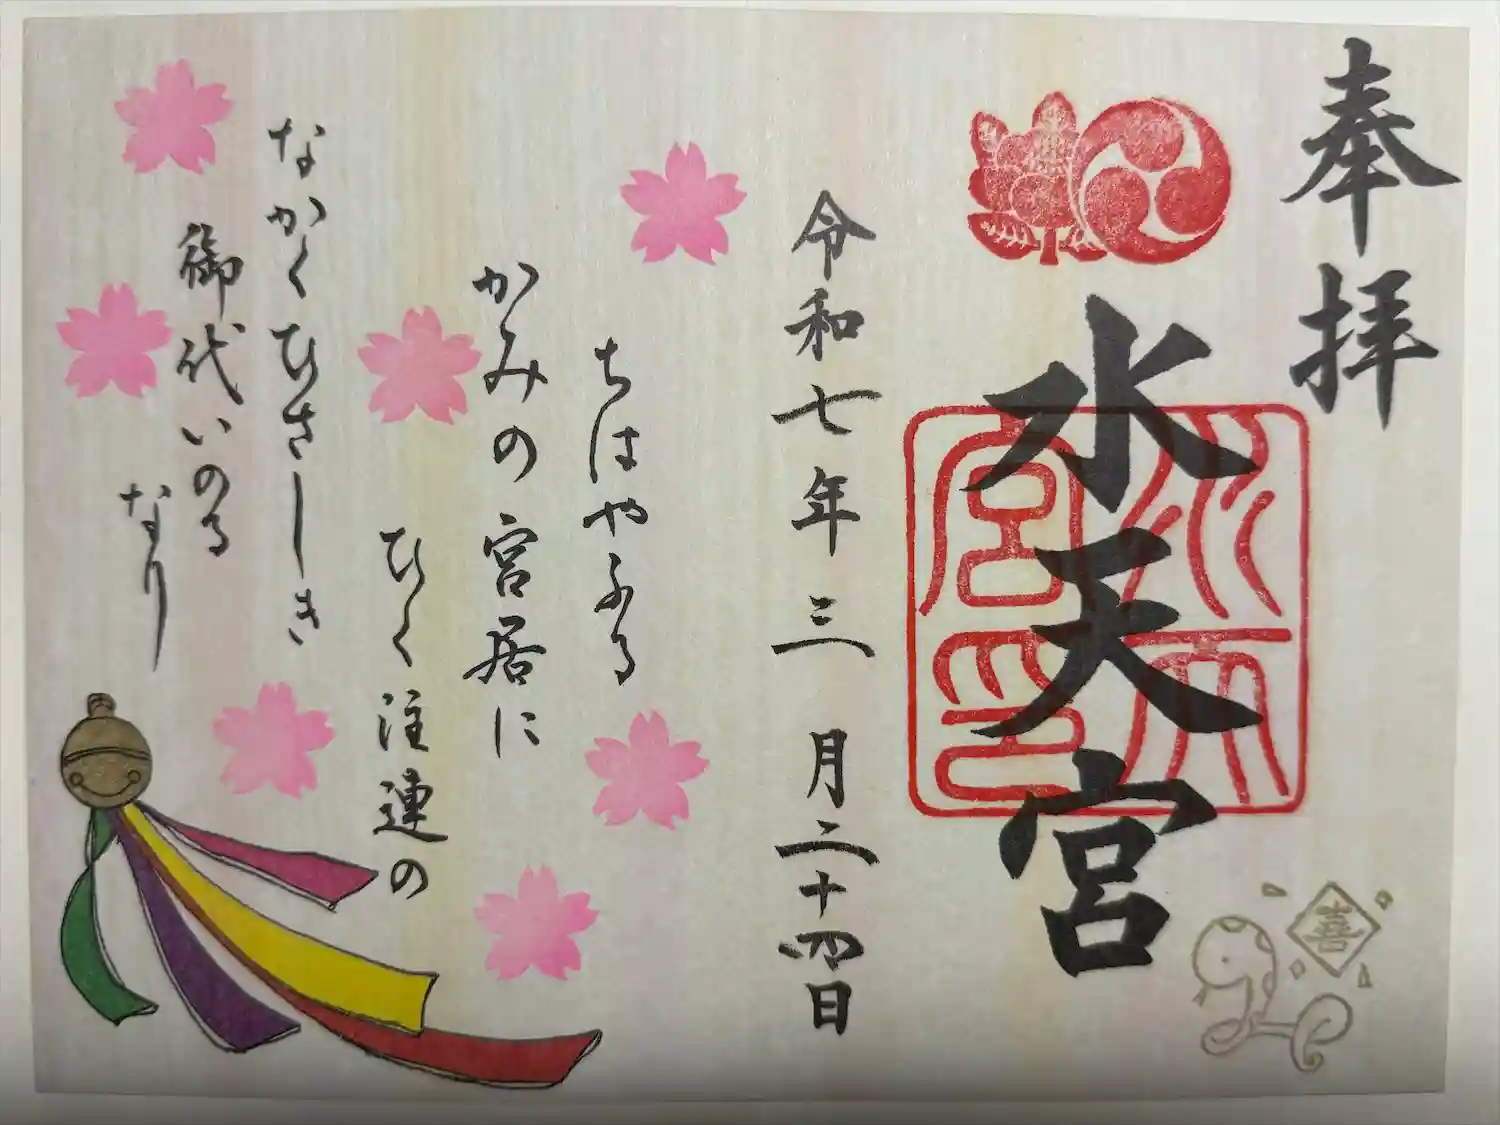 奉拝
水天宮
水天宮印
令和七年三月二十四日
ちはやふる
かみの宮居に
ひく注連の
なかくひさしき
御代いのる
なり
喜